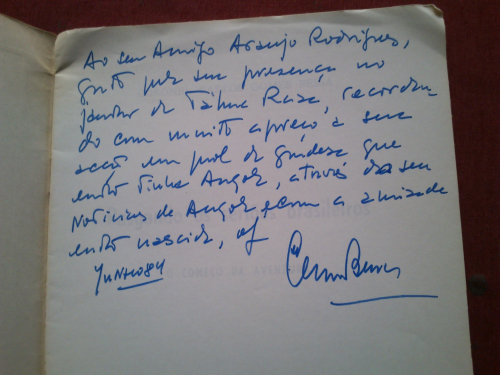 Ao seu Amigo Araujo Rodrigues,
grato pela sua presença no
jantar da Tábua Rasa, recordan-
do com muito apreço a sua
acção em prol da grandeza que
então tinha Angola, através do seu
Notícias de Angola, e com a amizade
então nascida, of
Junho 84
brasileiros